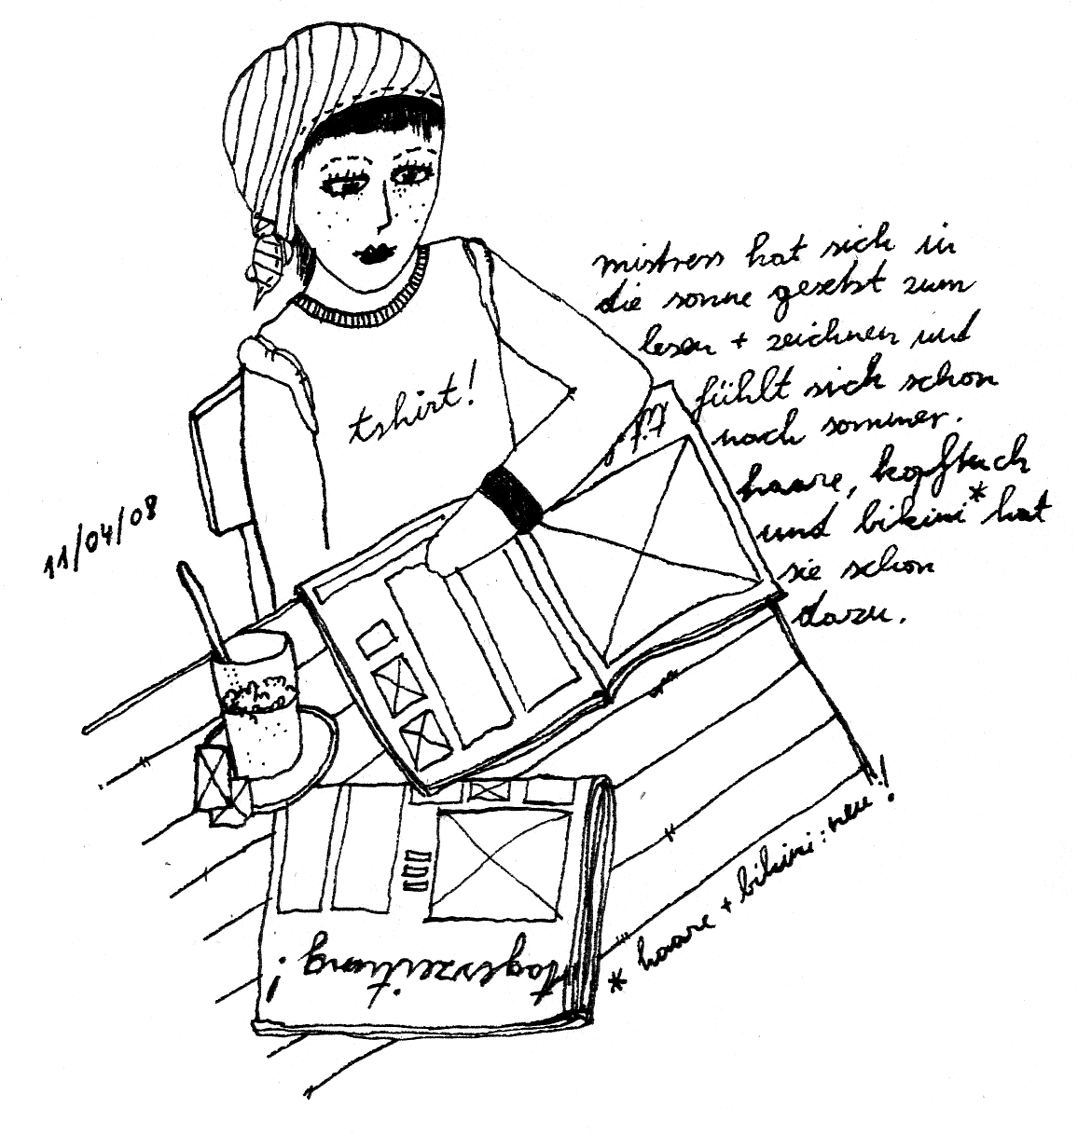 mistress hat sich in
die sonne gesetzt zum
lesen + zeichnen und
fühlt sich schon
nach sommer.
haare, kopftuch
und bikini* hat
sie schon
dazu.
tshirt!
11/04/08
* haare + bikini: neu!
tageszeitung!